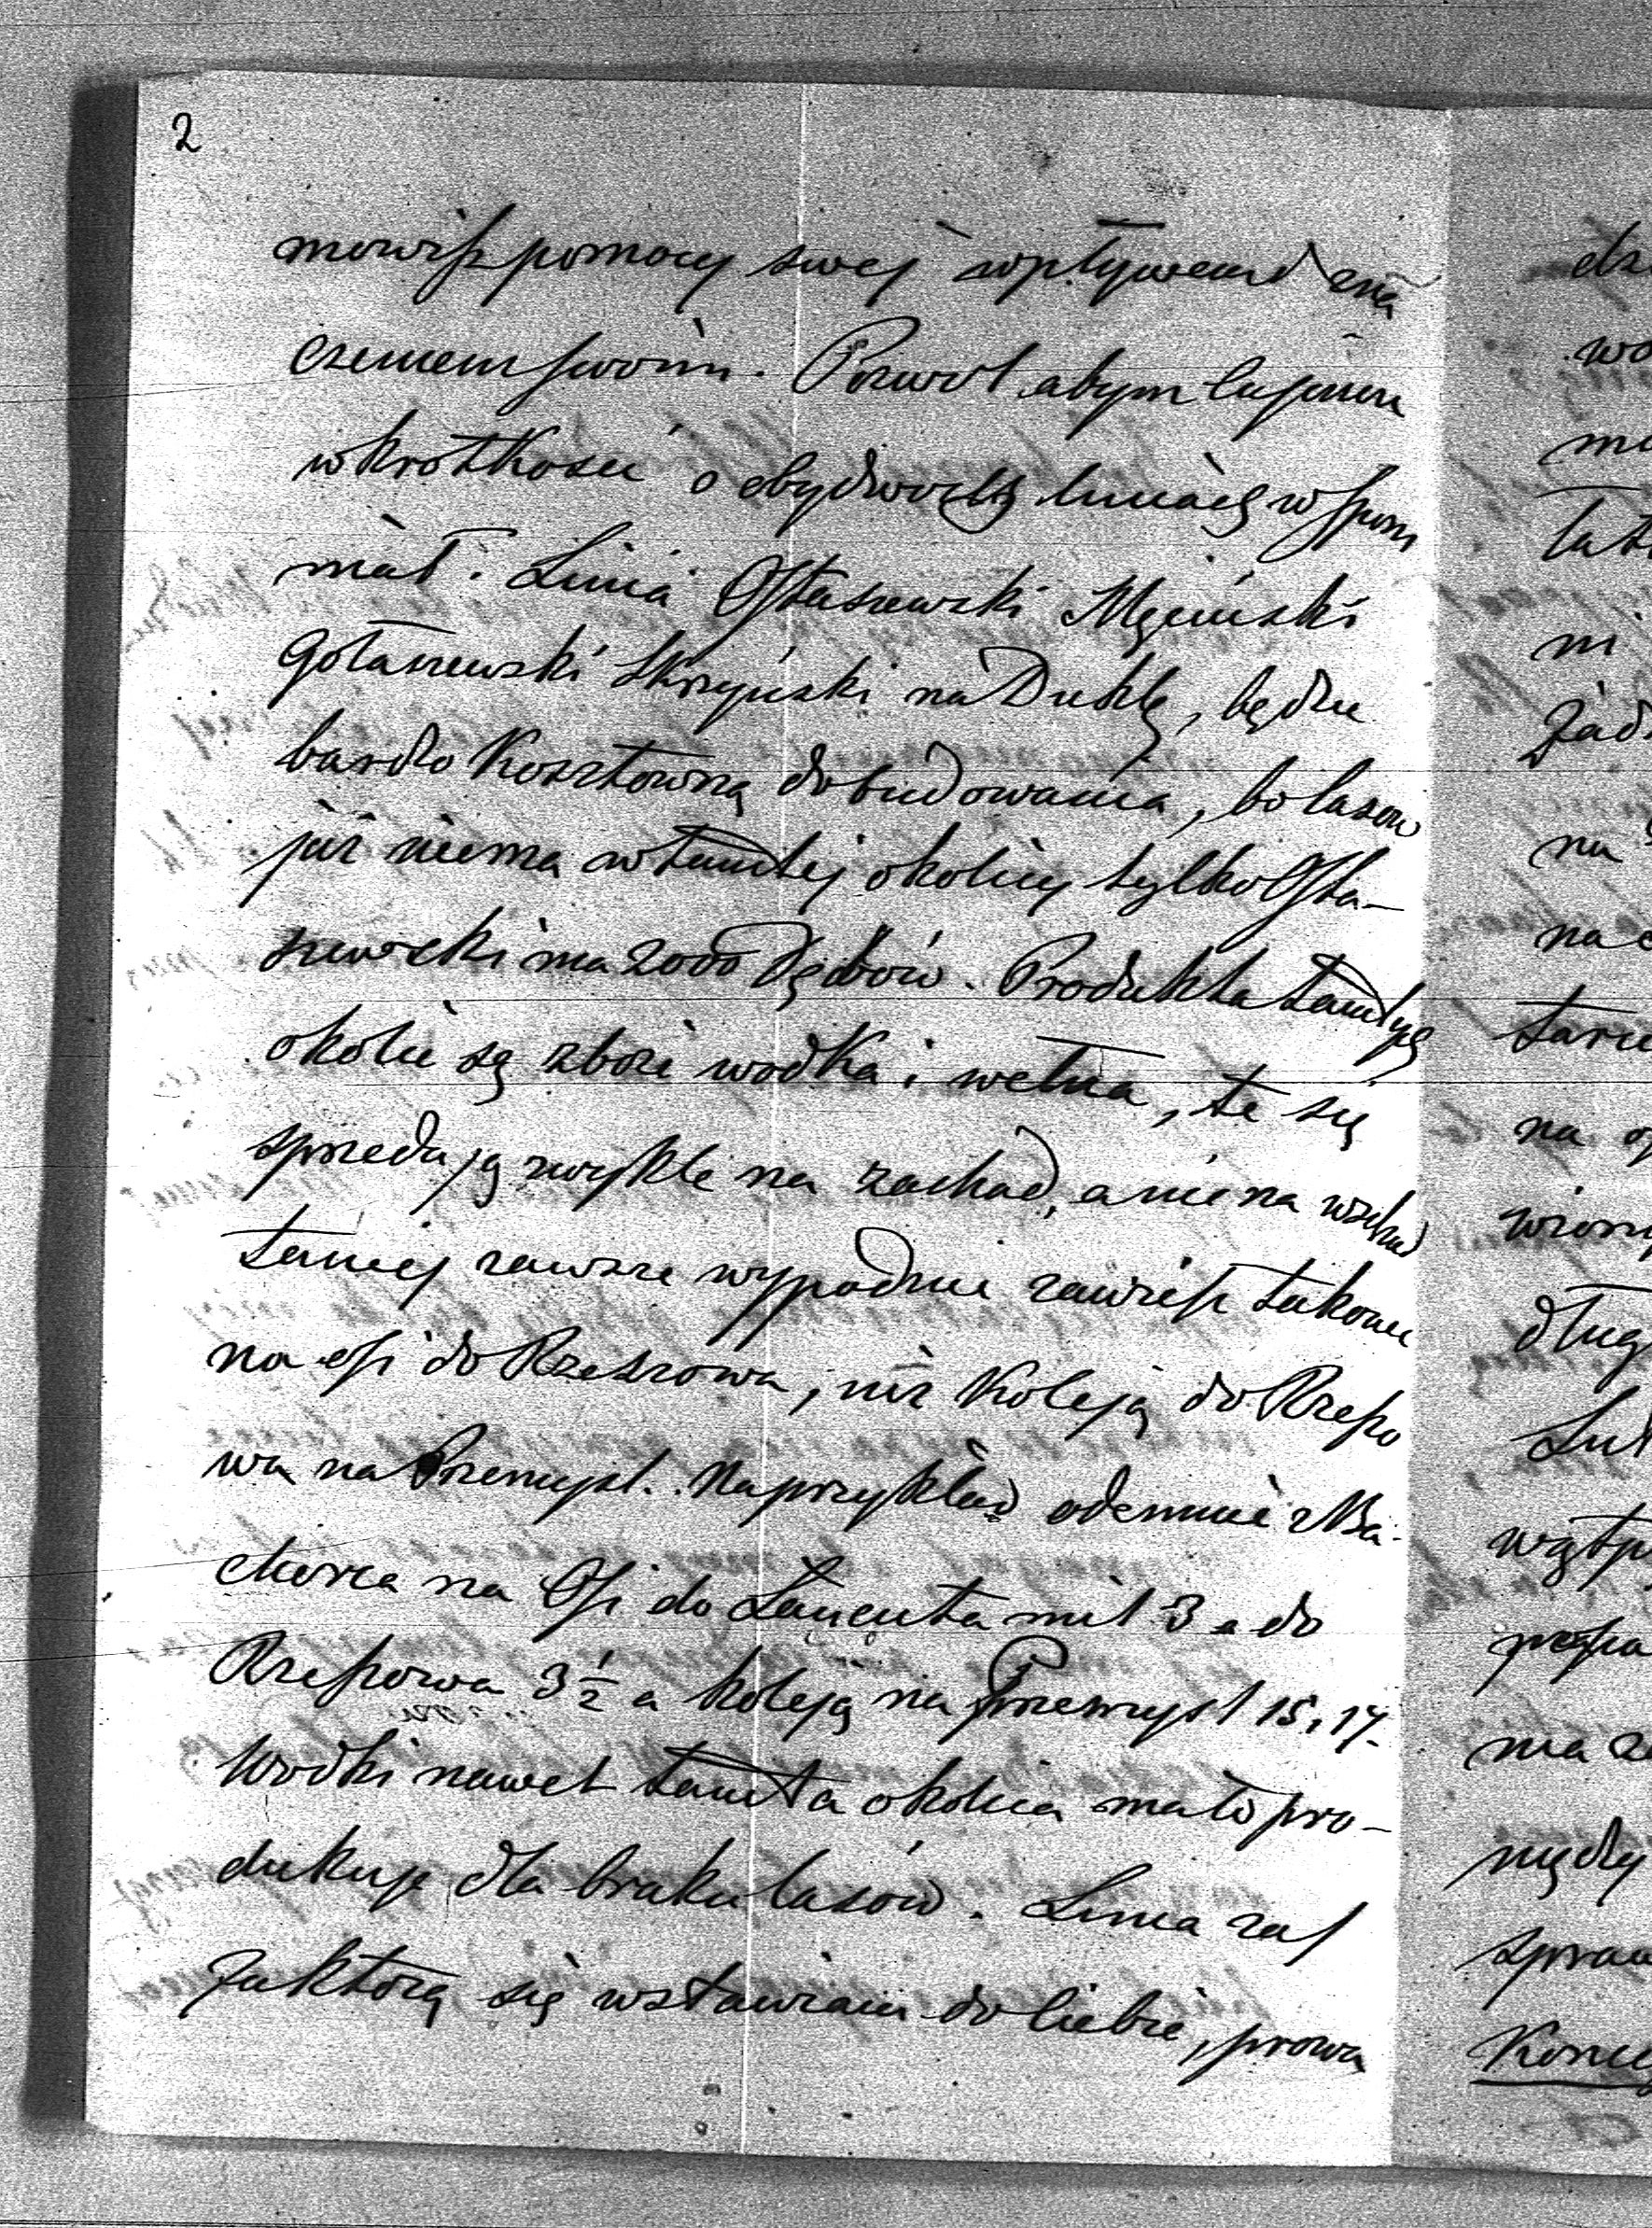 2
mowisz pomocy swej wpływem zna
czeniem swoim. Pozwol abym
w krotkosci o obydwoch liniach wspom
niał. Linia Ostaszewski Męcinski
Gołaszewski Skrzyński na Duklę, będzie
bardzo kosztowną do budowania, bo lasow
już niema w tamtej okolicy tylko Osta-
szewski ma 2000 Dębów. Produkta tamtych
okolic są zboże wodka i wełna, te się
sprzedają zwykle na zachod, a nie na wschod
taniej zawsze wypadnie zawieść takowe
na osi do Rzeszowa, niż koleją do Rzeszo
wa na Przemysl. Naprzykład odemnie z Ba-
chorca na Osi do Łancuta mil 3 a do
Rzeszowa 3½ a koleją na Przemysl 15, 17.
Wodki nawet tamta okolica mało pro-
dukuje dla braku lasów. Linia zas
za ktorą się wstawiam do Ciebie, prowa
dz
wo
na
ni
na
na
wiony
ma
nędzy
spraw